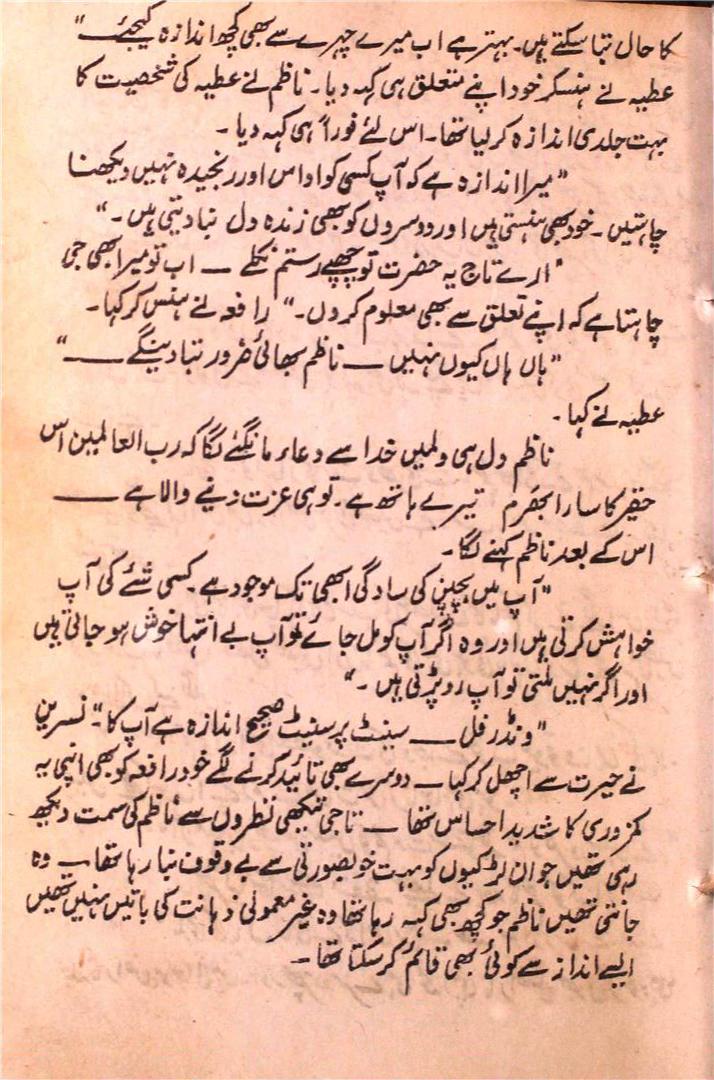 کا حال بتا سکتے ہیں۔ بہتر ہے اب میرے چہرے سے بھی کچھ اندازہ کیجئے ــــ"
عطیہ نے ہنسکر خود اپنے متعلق ہی کہہ دیا۔ ناظم نے عطیہ کی شخصیت کا
بہت جلدی اندازہ کر لیا تھا۔ اس لئے فوراً ہی کہہ دیا ۔
"میرا اندازہ ہے کہ آپ کسی کو اداس اور رنجیدہ نہیں دیکھنا
چاہتیں ۔ خود بھی ہنستی ہیں اور دوسروں کو بھی زندہ دل بنا دیتی ہیں ۔"
"ارے تاج یہ حضرت تو چھپے رستم نکلے ــــ اب تو میرا بھی جی
چاہتا ہے کہ اپنے تعلق سے بھی معلوم کر دں ۔" رافعہ نے ہنس کر کہا۔
"ہاں ہاں کیوں نہیں ــــ ناظم بھائی ضرور بتا دینگے ــــ"
عطیہ نے کہا ۔
ناظم دل ہی دلمیں خدا سے دعاء مانگنے لگا کہ رب العالمین اس
حقیر کا سارا بھرم تیرے ہاتھ ہے ۔ تو ہی عزت دینے والا ہے ــــ
اس کے بعد ناظم کہنے لگا ۔
"آپ میں بچپن کی سادگی ابھی تک موجود ہے ۔ کسی شئے کی آپ
خواہش کرتی ہیں اور وہ اگر آپ کو مل جائے تو آپ بے انتہا خوش ہو جاتی ہیں
اور اگر نہیں ملتی تو آپ رو پڑتی ہیں ۔"
"ونڈر فل ــــ سینٹ پر سنیٹ صحیح اندازہ ہے آپ کا" نسرین
نے حیرت سے اچھل کر کہا ــ دوسرے بھی تائید کرنے لگے خود رافعہ کو بھی اپنی یہ
کمزوری کا شدید احساس تھا ــــ تاجی تیکھی نظروں سے ناظم کی سمت دیکھ
رہی تھیں جو ان لڑکیوں کو بہت خوبصورتی سے بے وقوف بنا رہا تھا ــ وہ
جانتی تھیں ناظم جو کچھ بھی کہہ رہا تھا وہ غیر معمولی ذہانت کی باتیں نہیں تھیں
ایسے انداز سے کوئی بھی قائم کر سکتا تھا ــ